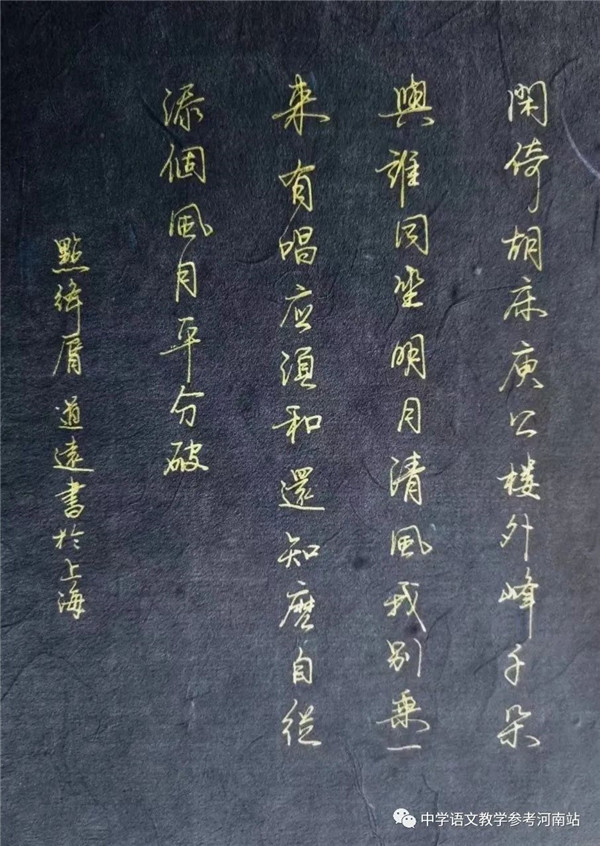 閑倚胡床庾公楼外峰千朵
與誰同坐明月清風我别乘一
来有唱应須和還知麽自從
添個風月平分破
點絳唇 道遠書於上海
中学语文教学参考河南站